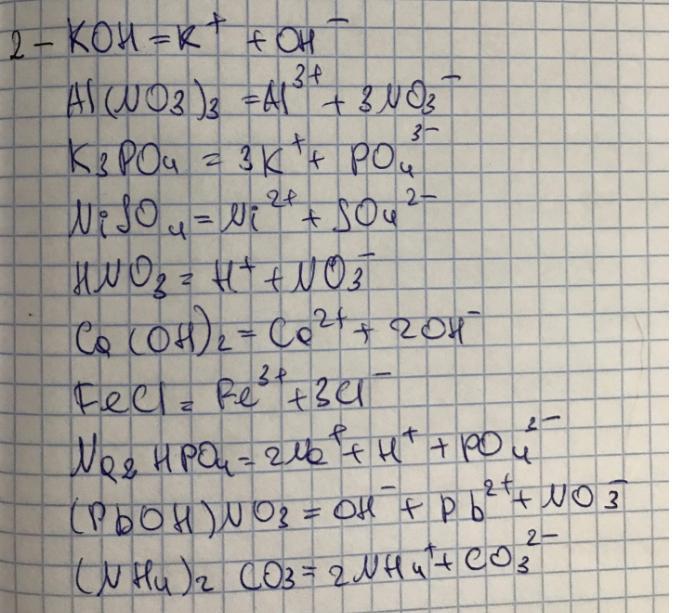 2 - KOH = K⁺ + OH⁻
Al(NO₃)₃ = Al³⁺ + 3NO₃⁻
K₃PO₄ = 3K⁺ + PO₄³⁻
NiSO₄ = Ni²⁺ + SO₄²⁻
HNO₃ = H⁺ + NO₃⁻
Ca(OH)₂ = Ca²⁺ + 2OH⁻
FeCl = Fe³⁺ + 3Cl⁻
Na₂HPO₄ = 2Na⁺ + H⁺ + PO₄³⁻
(PbOH)NO₃ = OH⁻ + Pb²⁺ + NO₃⁻
(NH₄)₂CO₃ = 2NH₄⁺ + CO₃²⁻